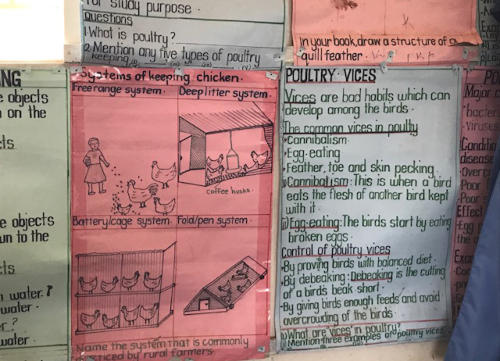 for study purpose.
Questions
1 What is poultry?
2 Mention any five types of poultry
keeping
In your book, draw a structure of a
quill feather.
NG
e objects
n on the
cts
e objects
wn to the
cts
n water.?
water
r?
water
Systems of keeping chicken.
Free range system.
Deep litter system.
coffee husks.
Battery/cage system.
Fold/pen system.
Name the system that is commonly
practiced by rural farmers.
POULTRY VICES
Vices are bad habits which can
develop among the birds.
The common vices in poultry
Cannibalism
Egg-eating
Feather, toe and skin pecking.
i) Cannibalism: This is when a bird
eats the flesh of another bird kept
with it.
ii) Egg-eating: The birds start by eating
broken eggs.
Control of poultry vices
By proving birds with balanced diet.
By debeaking: Debeaking is the cutting
of a birds beak short.
By giving birds enough feeds and avoid
overcrowding of the birds.
i) What are vices in poultry?
Mention three examples of poultry vices
PO
Major c
bacter
Viruses
Conditio
disease
Overc
Poor
Poor
Effect
Egg p
the